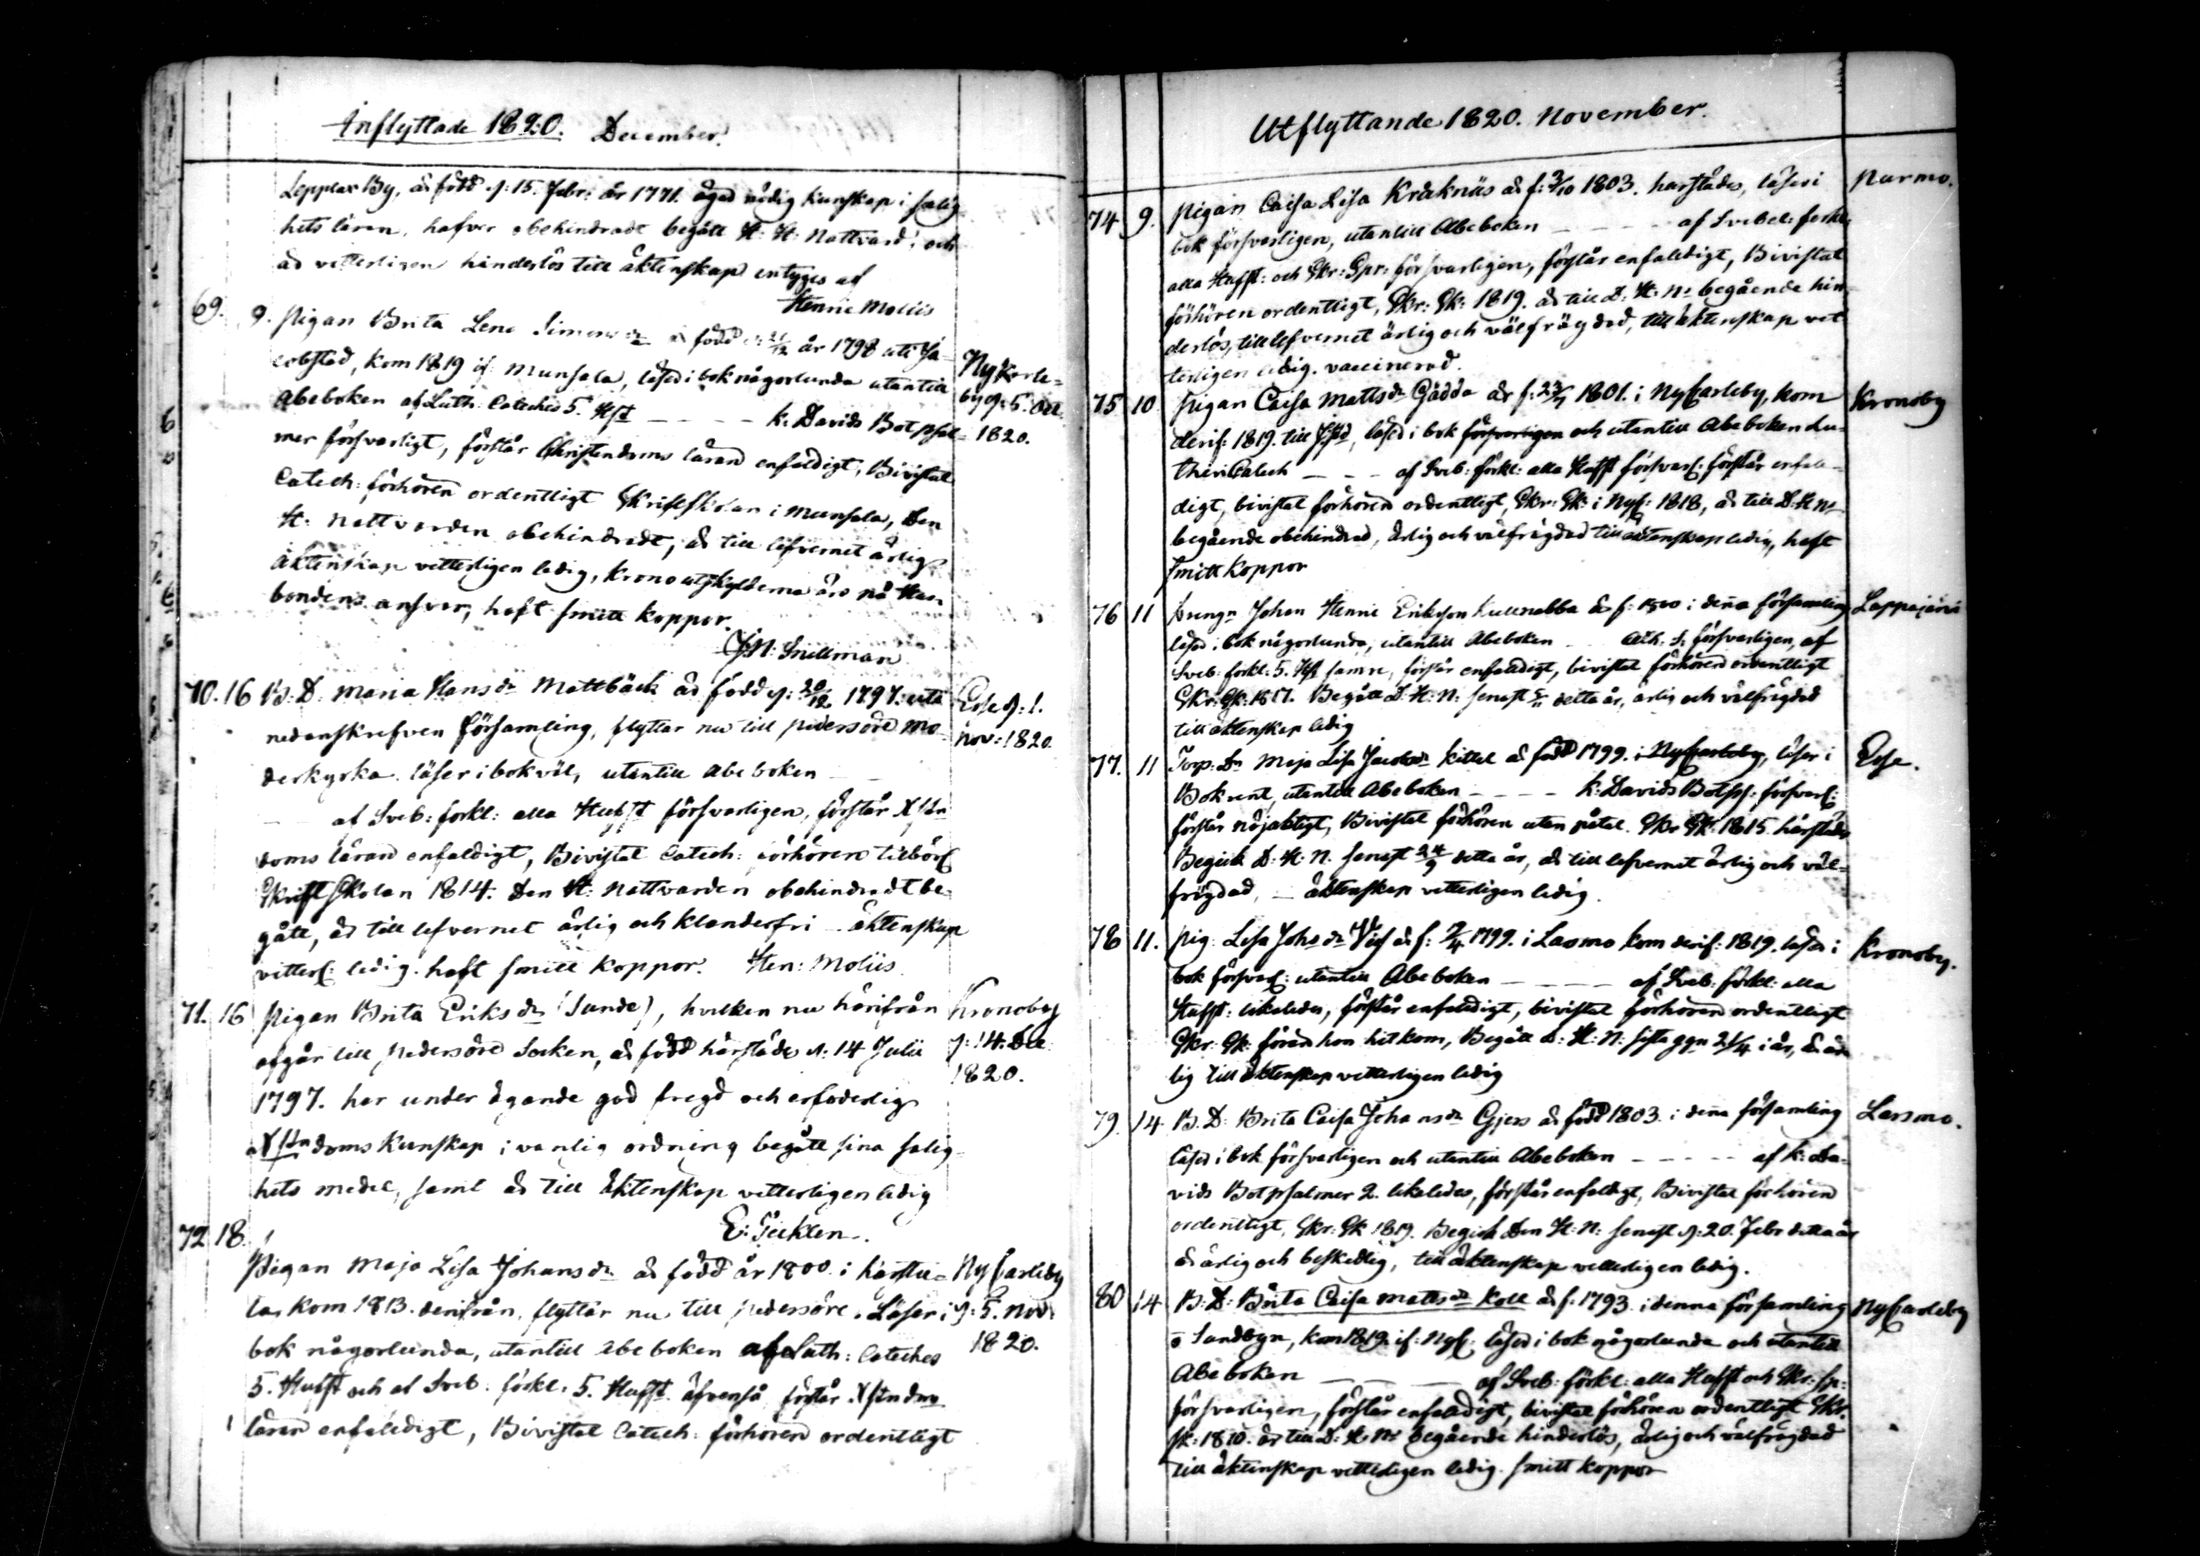 Inflyttade 1820. December.
Lepplax By, är född d: 15. Febr: år 1771. äger nödig kunskap i salig-
hets läran, hafver obehindradt begått H: H: Nattvard; och
är vetterligen hinderlös till äktenskap intyges af
Henric Moliis
69. 9. Pigan Brita Lena Simonsdr är född år 1798 uti Ja-
cobstad, kom 1819 if: Munsala, läser i bok någorlunda utantill
Abeboken af Luth: Cateches 5. Hst _ _ _ _ k: Davids Bot psal-
mer försvarligt, förstår Christendoms läran enfaldigt, Bivistat
Catech: förhören ordentligt Skriftskolan i Munsala, Den
H: Nattvarden obehindradt, är till lefvernet ärlig
Äktenskap vetterligen ledig, Krono utskylderna äro på Hus-
bondens ansvar, haft smitt koppor.
Nykarle-
by d: 5. Oct
1820.
J N: Snellman
70. 16 B: D: Maria Hansdr Mattbäck är född d: 20/12 1797. uti
nedanskrefven församling, flyttar nu till Pedersöre Mo-
derkyrka. läser i bok väl, utantill Abeboken _ _
_ _ af Sveb: förkl: alla Hufst försvarligen, förstår Xstn
doms läran enfaldigt, Bivistat Catech: förhören tilbörl
Skriftskolan 1814. Den H: Nattvarden obehindradt be-
gått, är till lefvernet ärlig och klanderfri _ äktenskap
vitterl: ledig. haft smitt koppor. Hen: Moliis
Esse d: 1.
Nov: 1820.
71. 16 Pigan Brita Eriksdr (Sunde), hvilken nu härifrån
afgår till Pedersöre Socken, är född härstädes d: 14 Julii
1797. har under ägande god fregd och erfoderlig
Xstndoms kunskap i vanlig ordning begått sina salig-
hets medel, samt är till Äktenskap vetterligen ledig
Kronoby
d: 14. Dec
1820.
72 18. Pigan Maja Lisa Johansdr är född år 1800. i Harstu-
la, kom 1813. derifrån, flyttar nu till Pedersöre. Läser i
bok någorlunda, utantill Abeboken af Luth: Cateches
5. Hufst och af Sveb: förkl: 5. Hufst äfvenså förstår Xstndms
läran enfaldigt, Bivistat Catech: förhören ordentligt
NyCarleby
d: 5. Nov:
1820.
Utflyttande 1820. November.
74 9. Pigan Caisa Lisa Kråknäs är f: 3/10 1803. härstädes, läser i Purmo.
bok försvarligen, utantill Abeboken _ _ _ af Svebel: förkl:
alla Hufst: och Skr: Spr: försvarligen, förstår enfaldigt, Bivistat
förhören ordentligt, Skr: Sk: 1819. är till D: H: Ns begående hin-
derlös, till lefvernet ärlig och välfrägdad, till äktenskap vet-
terligen ledig. vaccinerad.
75 10 Pigan Caisa Mattsdr Gädda är f: 1801. i NyCarleby, kom Kronoby
derif: 1819. till, läser i bok försvarligen och utantill Abeboken Lu-
theri Catech _ _ _ af Sveb: förkl: alla Hufst försvarl: förstår enfal-
digt, bivistat förhören ordentligt, Skr: Sk: i Nyc: 1818, är till D: H Ns
begående obehindrad, ärlig och välfrägdad till äktenskap ledig, haft
smitt koppor
76 11 Dreng Johan Henric Erikson är f: 1800 i denna församling Lappajärvi
läser i bok någorlunda, utantill Abeboken _ _ försvarligen, af
Sveb: förkl: 5. Hst samre, förstår enfaldigt, bivistat förhören ordentligt
Skr: Sk: 1817. Begått D: H: N: senast detta år, ärlig och välfrägdad
till äktenskap ledig
77. 11 Torp: Dr Maja Lisa Jacobsdr Kittel är född 1799. i NyCarleby, läser i Esse.
Bok rent, utantill Abeboken _ _ _ _ k: Davids Botps: försvarl:
förstår nöjaktigt, Bivistat förhören utan påtal. Skr Sk: 1815. härstädes
Begick D: H: N. senast 24/9 detta år, är till lefvernet ärlig och väl-
frägdad, _ äktenskap vetterligen ledig.
78 11. Pig: Lisa Johsdr är f: 1799. i Larsmo kom derif: 1819. läser i Kronoby.
bok försvarl: utantill Abeboken _ _ _ _ af Sveb: förkl: alla
Hufst: likaledes, förstår enfaldigt, bivistat förhören ordentligt
Skr: Sk: förän hon hit kom, Begått D: H: N: sista ggn 2/4 i år, är är-
lig till Äktenskap vetterligen ledig
79. 14. B: D: Brita Caisa Johansdr Gjers är född 1803. i denna församling Larsmo.
läser i bok försvarligen och utantill Abeboken _ _ _ _ af k: Da-
vids Botpsalmer 2. likaledes, förstår enfaldigt, Bivistat förhören
ordentligt, Skr: Sk 1819. Begick Den H: N: senast d: 20. Febr detta år
är ärlig och beskedlig, till äktenskap vetterligen ledig.
80 14 B: D: Brita Caisa Mattsdr Koll är f. 1793. i denna församling NyCarleby
o Sandbyn, kom 1819. if: Nyc: läser i bok någorlunda och utantill
Abeboken _ _ _ _ af Sveb: förkl: alla Hufst och Skr: sp:
försvarligen, förstår enfaldigt, bivistat förhören ordentligt Skr.
sk: 1810. är till D: H: Ns begående hinderlös, ärlig och välfrägdad
till äktenskap vetterligen ledig. smitt koppor